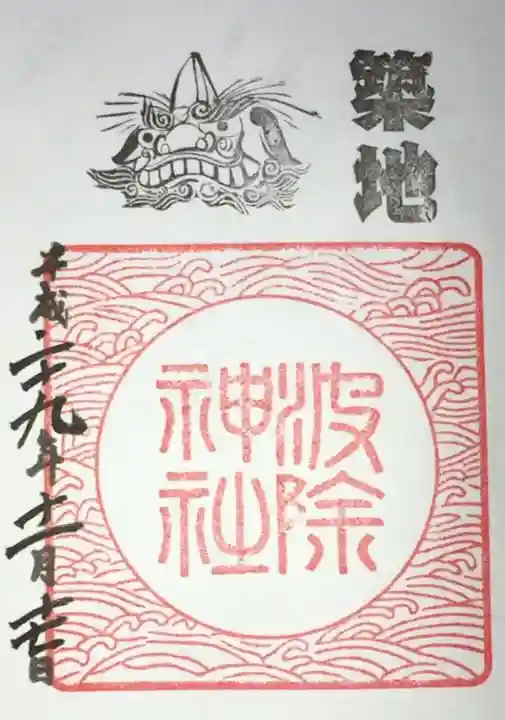 築地
波除
神社
平成二十九年十一月十六日